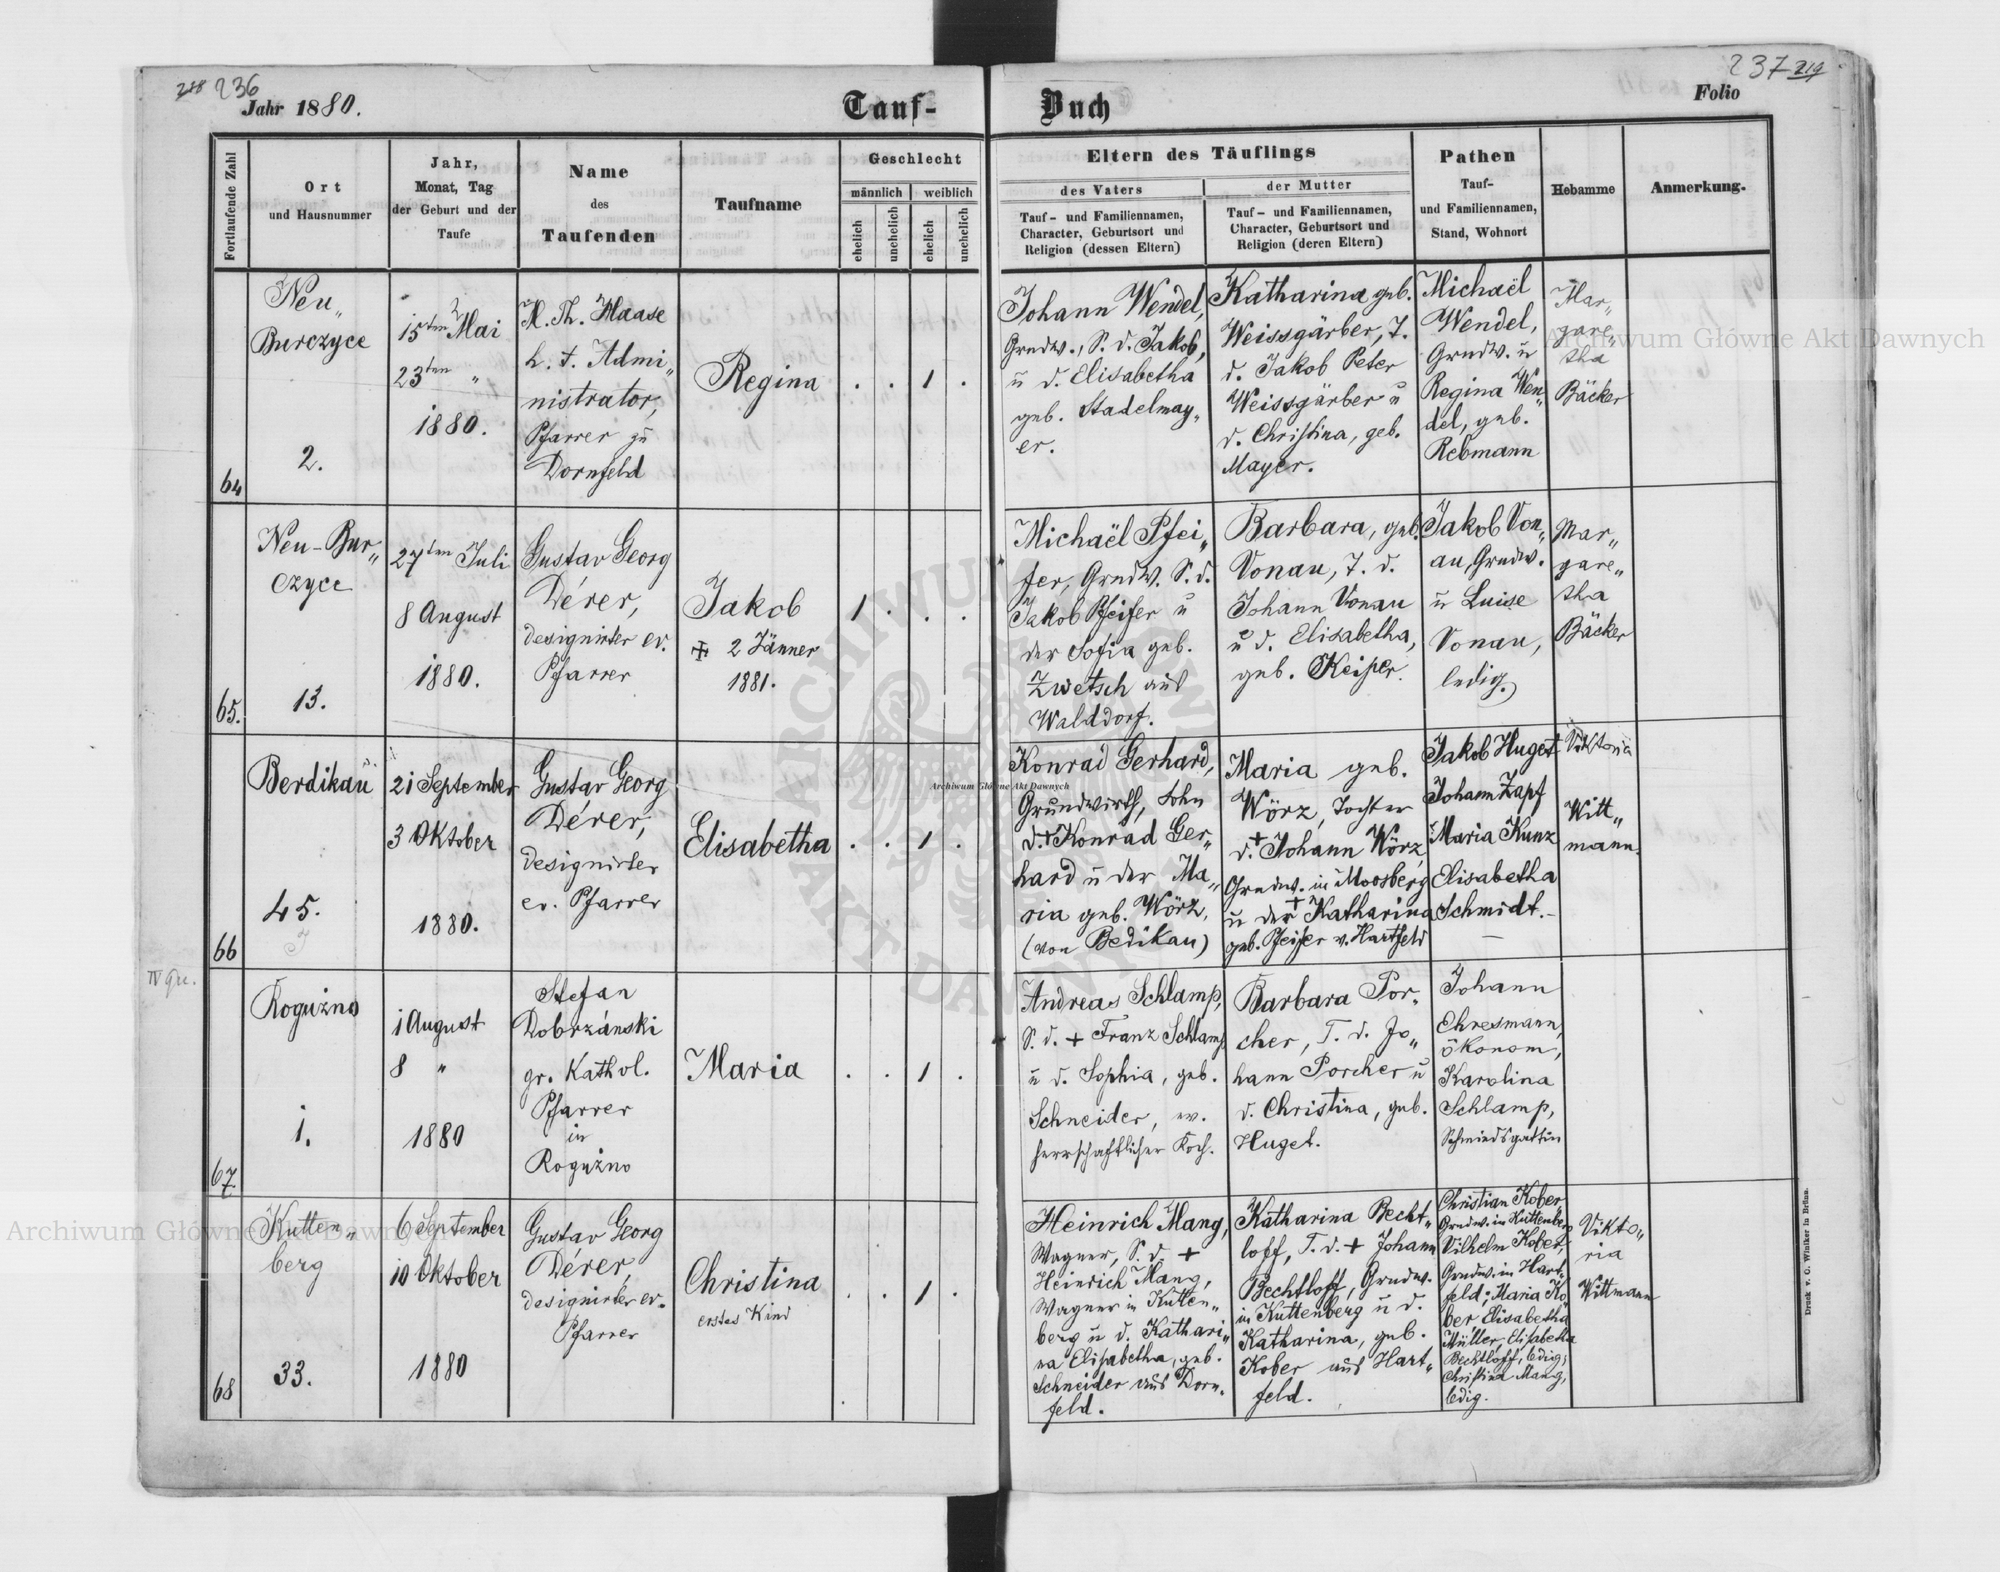 218 236
Jahr 1880.
Tauf-
Buch
237 219
Folio
Fortlaufende Zahl
Ort
und Hausnummer
Jahr,
Monat, Tag
der Geburt und der
Taufe
Name
des
Taufenden
Taufname
Geschlecht
männlich
weiblich
ehelich
unehelich
ehelich
unehelich
Eltern des Täuflings
des Vaters
Tauf- und Familiennamen,
Character, Geburtsort und
Religion (dessen Eltern)
der Mutter
Tauf- und Familiennamen,
Character, Geburtsort und
Religion (deren Eltern)
Pathen
Tauf-
und Familiennamen,
Stand, Wohnort
Hebamme
Anmerkung.
64
Neu-
Burczyce
2.
15ten Mai
23ten "
1880.
A. Th. Haase
h. t. Admi-
nistrator,
Pfarrer zu
Dornfeld
Regina
. . 1 .
Johann Wendel,
Grndw., S. d. Jakob,
u d. Elisabetha
geb. Stadelmay-
er.
Katharina geb.
Weissgärber, T.
d. Jakob Peter
Weissgärber u
d. Christina, geb.
Mayer.
Michaël
Wendel,
Grndw. u
Regina Wen-
del, geb.
Rebmann
Mar-
gare-
tha
Bäcker
65.
Neu-Bur-
czyce
13.
27ten Juli
8 August
1880.
Gustav Georg
Dérer,
designirter ev.
Pfarrer
Jakob
✠ 2 Jänner
1881.
1 . . .
Michaël Pfei-
fer, Grndw. S. d.
Jakob Pfeifer u
der Sofia geb.
Zwetsch aus
Walddorf.
Barbara, geb.
Vonau, T. d.
Johann Vonau
u d. Elisabetha,
geb. Keiper.
Jakob Von-
au, Grndw.
u Luise
Vonau,
ledig.
Mar-
gare-
tha
Bäcker
66
Berdikau
45.
21 September
3 Oktober
1880.
Gustav Georg
Dérer,
designirter
ev. Pfarrer
Elisabetha
. . 1 .
Konrad Gerhard,
Grundwirth, Sohn
d. + Konrad Ger-
hard u der Ma-
ria geb. Wörz,
(von Bedikau)
Maria geb.
Wörz, Tochter
d. + Johann Wörz,
Grndw. in Moosberg
u der + Katharina
geb. Pfeifer v. Hartfeld
Jakob Huget
Johann Zapf
Maria Kunz
Elisabetha
Schmidt.-
Viktoria
Witt-
mann.
67
Rogużno
1.
1 August
8 "
1880
Stefan
Dobrzánski
gr. Kathol.
Pfarrer
in
Rogużno
Maria
. . 1 .
Andreas Schlamp,
S. d. + Franz Schlamp
u d. Sophia, geb.
Schneider, ev.
herrschaftlicher Koch.
Barbara Por-
cher, T. d. Jo-
hann Porcher u
d. Christina, geb.
Huget.
Johann
Ehresmann,
ökonom,
Karolina
Schlamp,
Schmiedsgattin
68
Kutten-
berg
33.
6 September
10 Oktober
1880
Gustav Georg
Dérer,
designirter ev.
Pfarrer
Christina
erstes Kind
. . 1 .
Heinrich Mang,
Wagner, S. d. +
Heinrich Mang,
Wagner in Kutten-
berg u d. Kathari-
na Elisabetha, geb.
Schneider aus Dorn-
feld.
Katharina Becht-
loff, T. d. + Johann
Bechtloff, Grndw.
in Kuttenberg u d.
Katharina, geb.
Kober aus Hart-
feld.
Christian Kober
Grndw. in Kuttenberg
Vilhelm Kober,
Grndw. in Hart-
feld; Maria Ko-
ber, Elisabetha
Müller, Elisabetha
Bechtloff, ledig;
Christina Mang,
ledig.
Vikto-
ria
Wittmann
Druck v. O. Winiker in Brünn.
Archiwum Główne Akt Dawnych
Archiwum Główne Akt Dawnych
Archiwum Główne Akt Dawnych